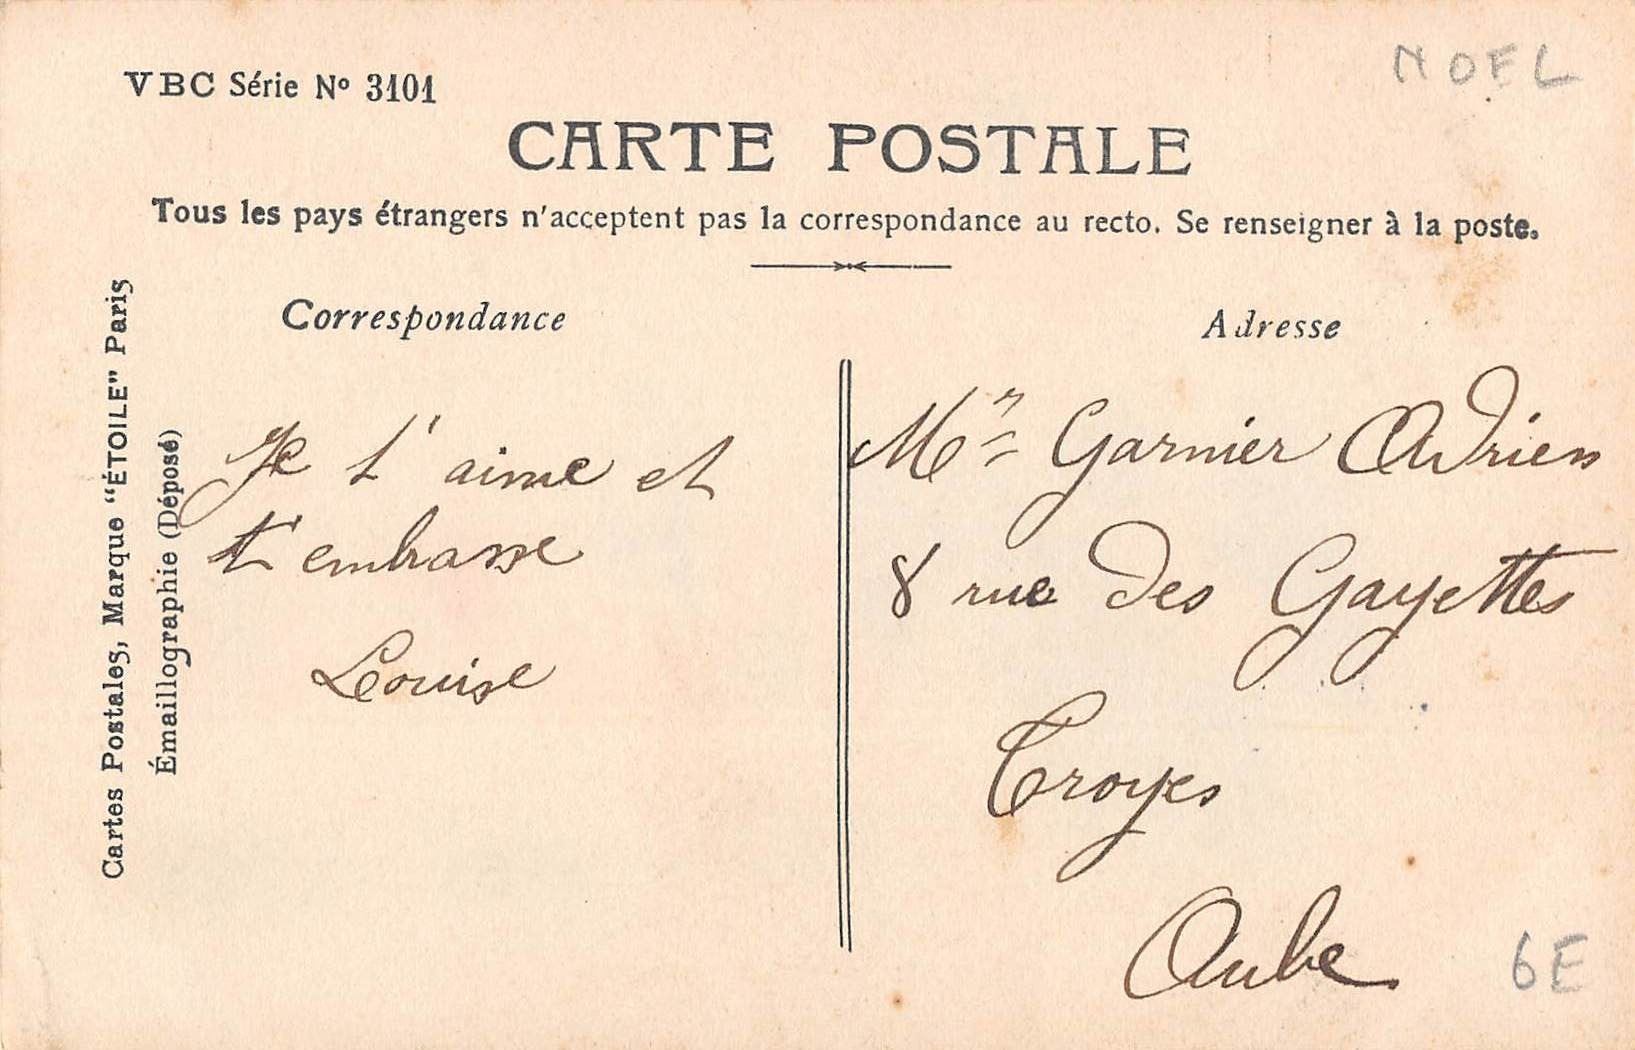 NOEL
VBC Série Nº 3101
CARTE POSTALE
Tous les pays étrangers n'acceptent pas la correspondance au recto. Se renseigner à la poste.
Correspondance
Je t'aime et
t'embrasse
Louise
Adresse
Mr Garnier Adrien
8 rue des Gayettes
Troyes
Aube
6E
Cartes Postales, Marque "ÉTOILE" Paris
Émaillographie (Déposé)